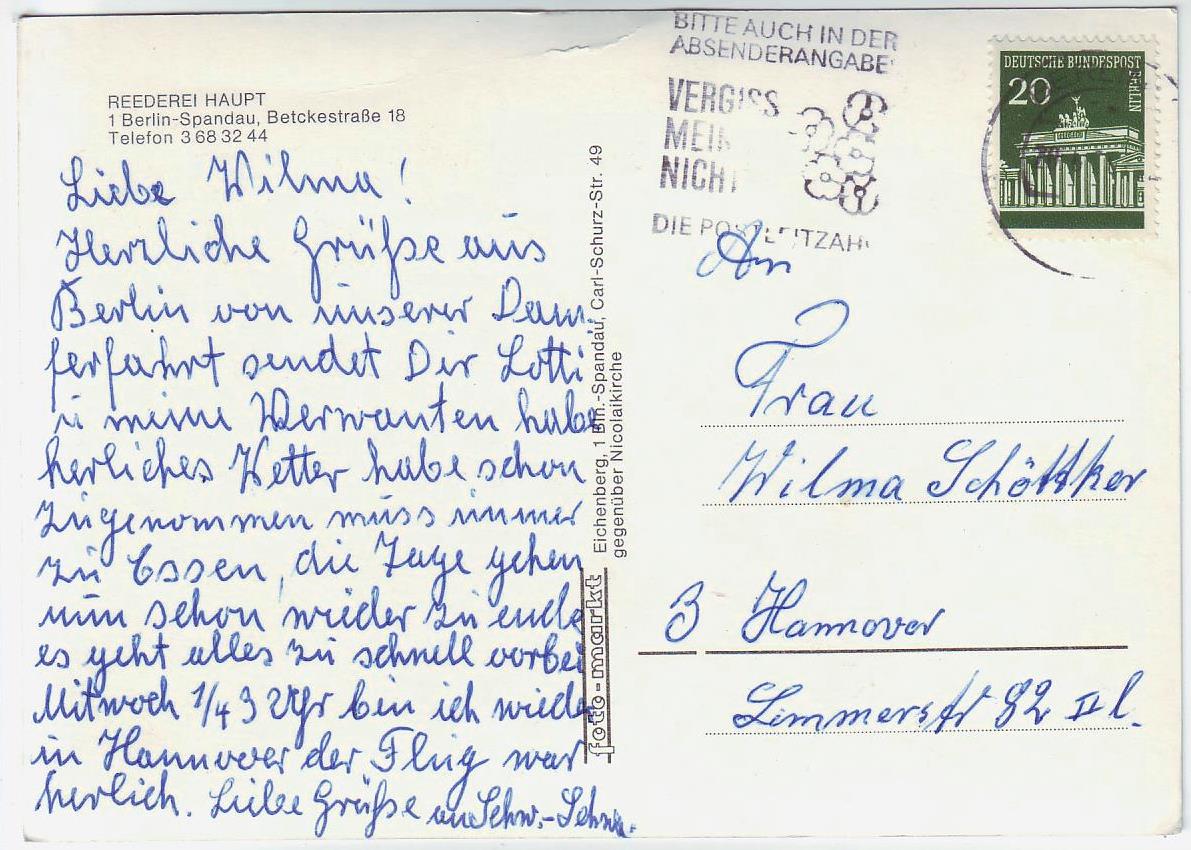 REEDEREI HAUPT
1 Berlin-Spandau, Betckestraße 18
Telefon 3 68 32 44
Liebe Wilma!
Herzliche Grüße aus
Berlin von unserer Dam-
ferfahrt sendet Dir Lotti
u meine Verwanten habe
herliches Wetter habe schon
zugenommen muss immer
zu Essen, die Tage gehen
nun schon wieder zu ende
es geht alles zu schnell vorbei
Mitwoch 1/4 3 Uhr bin ich wieder
in Hannover der Flug war
herlich. Liebe Grüße an Schw.-
Eichenberg, 1 Bln.-Spandau, Carl-Schurz-Str. 49
gegenüber Nicolaikirche
foto-markt
BITTE AUCH IN DER
ABSENDERANGABE
VERGISS
MEIN
NICHT
DIE POSTLEITZAHL
DEUTSCHE BUNDESPOST
BERLIN
20
An
Frau
Wilma Schöttker
3 Hannover
Limmerstr 82 II l.